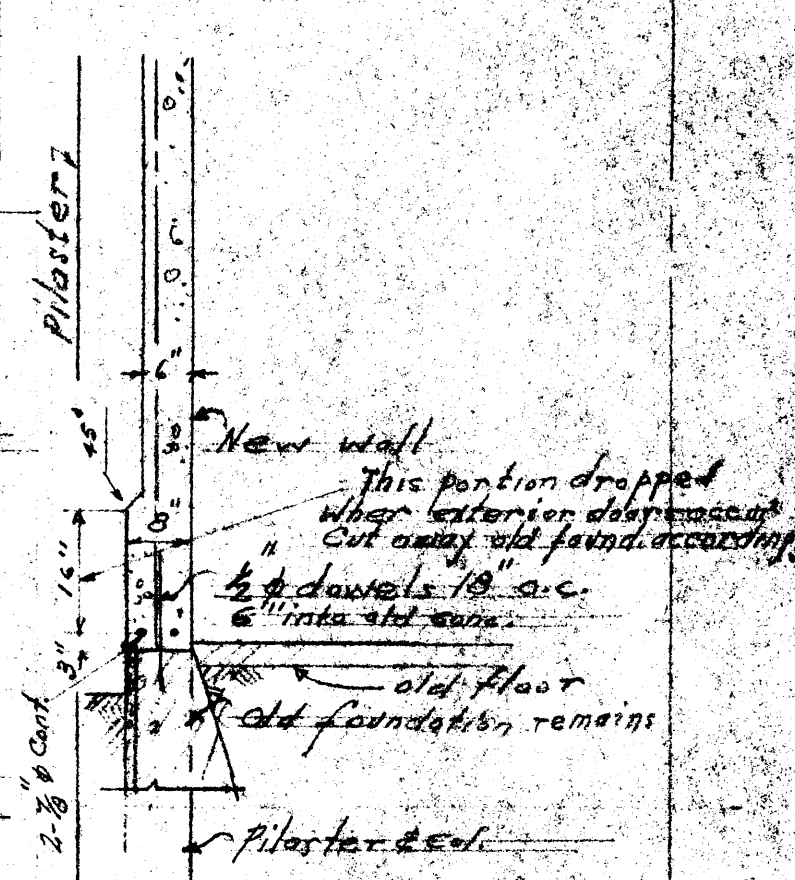 Pilaster
6"
45°
New wall
This portion dropped
when exterior doors occur
Cut away old found. accordingly
8"
16"
1/2" ϕ dowels 18" o.c.
6" into old conc.
3"
old floor
Old foundation remains
2-7/8" ϕ Cont.
Pilaster & Col.